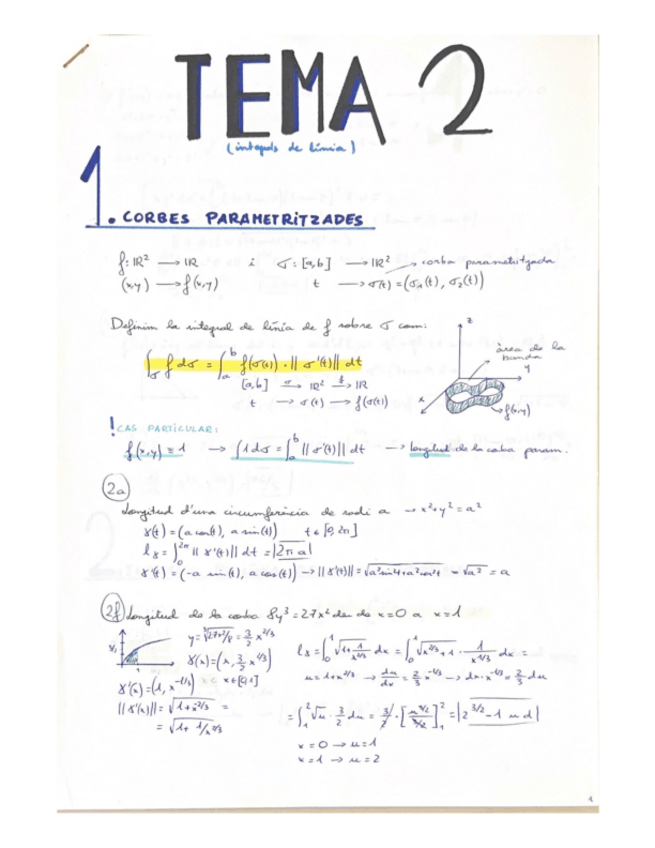 TEMA 2
(integrals de línia)
1. CORBES PARAMETRITZADES
f: ℝ² → ℝ i σ: [a,b] → ℝ² → corba parametritzada
(x,y) → f(x,y) t → σ(t) = (σ₁(t), σ₂(t))
Definim la integral de línia de f sobre σ com:
∫σ f dσ = ∫ₐᵇ f(σ(t)) · ||σ'(t)|| dt
[a,b] σ→ ℝ² f→ ℝ
t → σ(t) → f(σ(t))
z
àrea de la
banda
y
x
f(x,y)
! CAS PARTICULAR:
f(x,y) = 1 → ∫ 1 dσ = ∫ₐᵇ ||σ'(t)|| dt → longitud de la corba param.
2a
Longitud d'una circumferència de radi a → x²+y² = a²
γ(t) = (a cos(t), a sin(t)) t ∈ [0, 2π]
lγ = ∫₀²π ||γ'(t)|| dt = |2π a|
γ'(t) = (-a sin(t), a cos(t)) → ||γ'(t)|| = √a²sin²t+a²cos²t = √a² = a
2f Longitud de la corba 8y³ = 27x² des de x=0 a x=1
y = ∛27x²/8 = 3/2 x^2/3
γ(x) = (x, 3/2 x^2/3)
x ∈ [0,1]
1
γ'(x) = (1, x^-1/3)
||γ'(x)|| = √1+x^-2/3 =
= √1+ 1/x^2/3
lγ = ∫₀¹ √1+1/x^2/3 dx = ∫₀¹ √x^2/3+1 · 1/x^1/3 dx =
u = 1+x^2/3 → du/dx = 2/3 x^-1/3 → dx·x^-1/3 = 3/2 du
= ∫₁² √u · 3/2 du = 3/2 · [u^3/2 / 3/2]₁² = |2^3/2 - 1 u d|
x=0 → u=1
x=1 → u=2